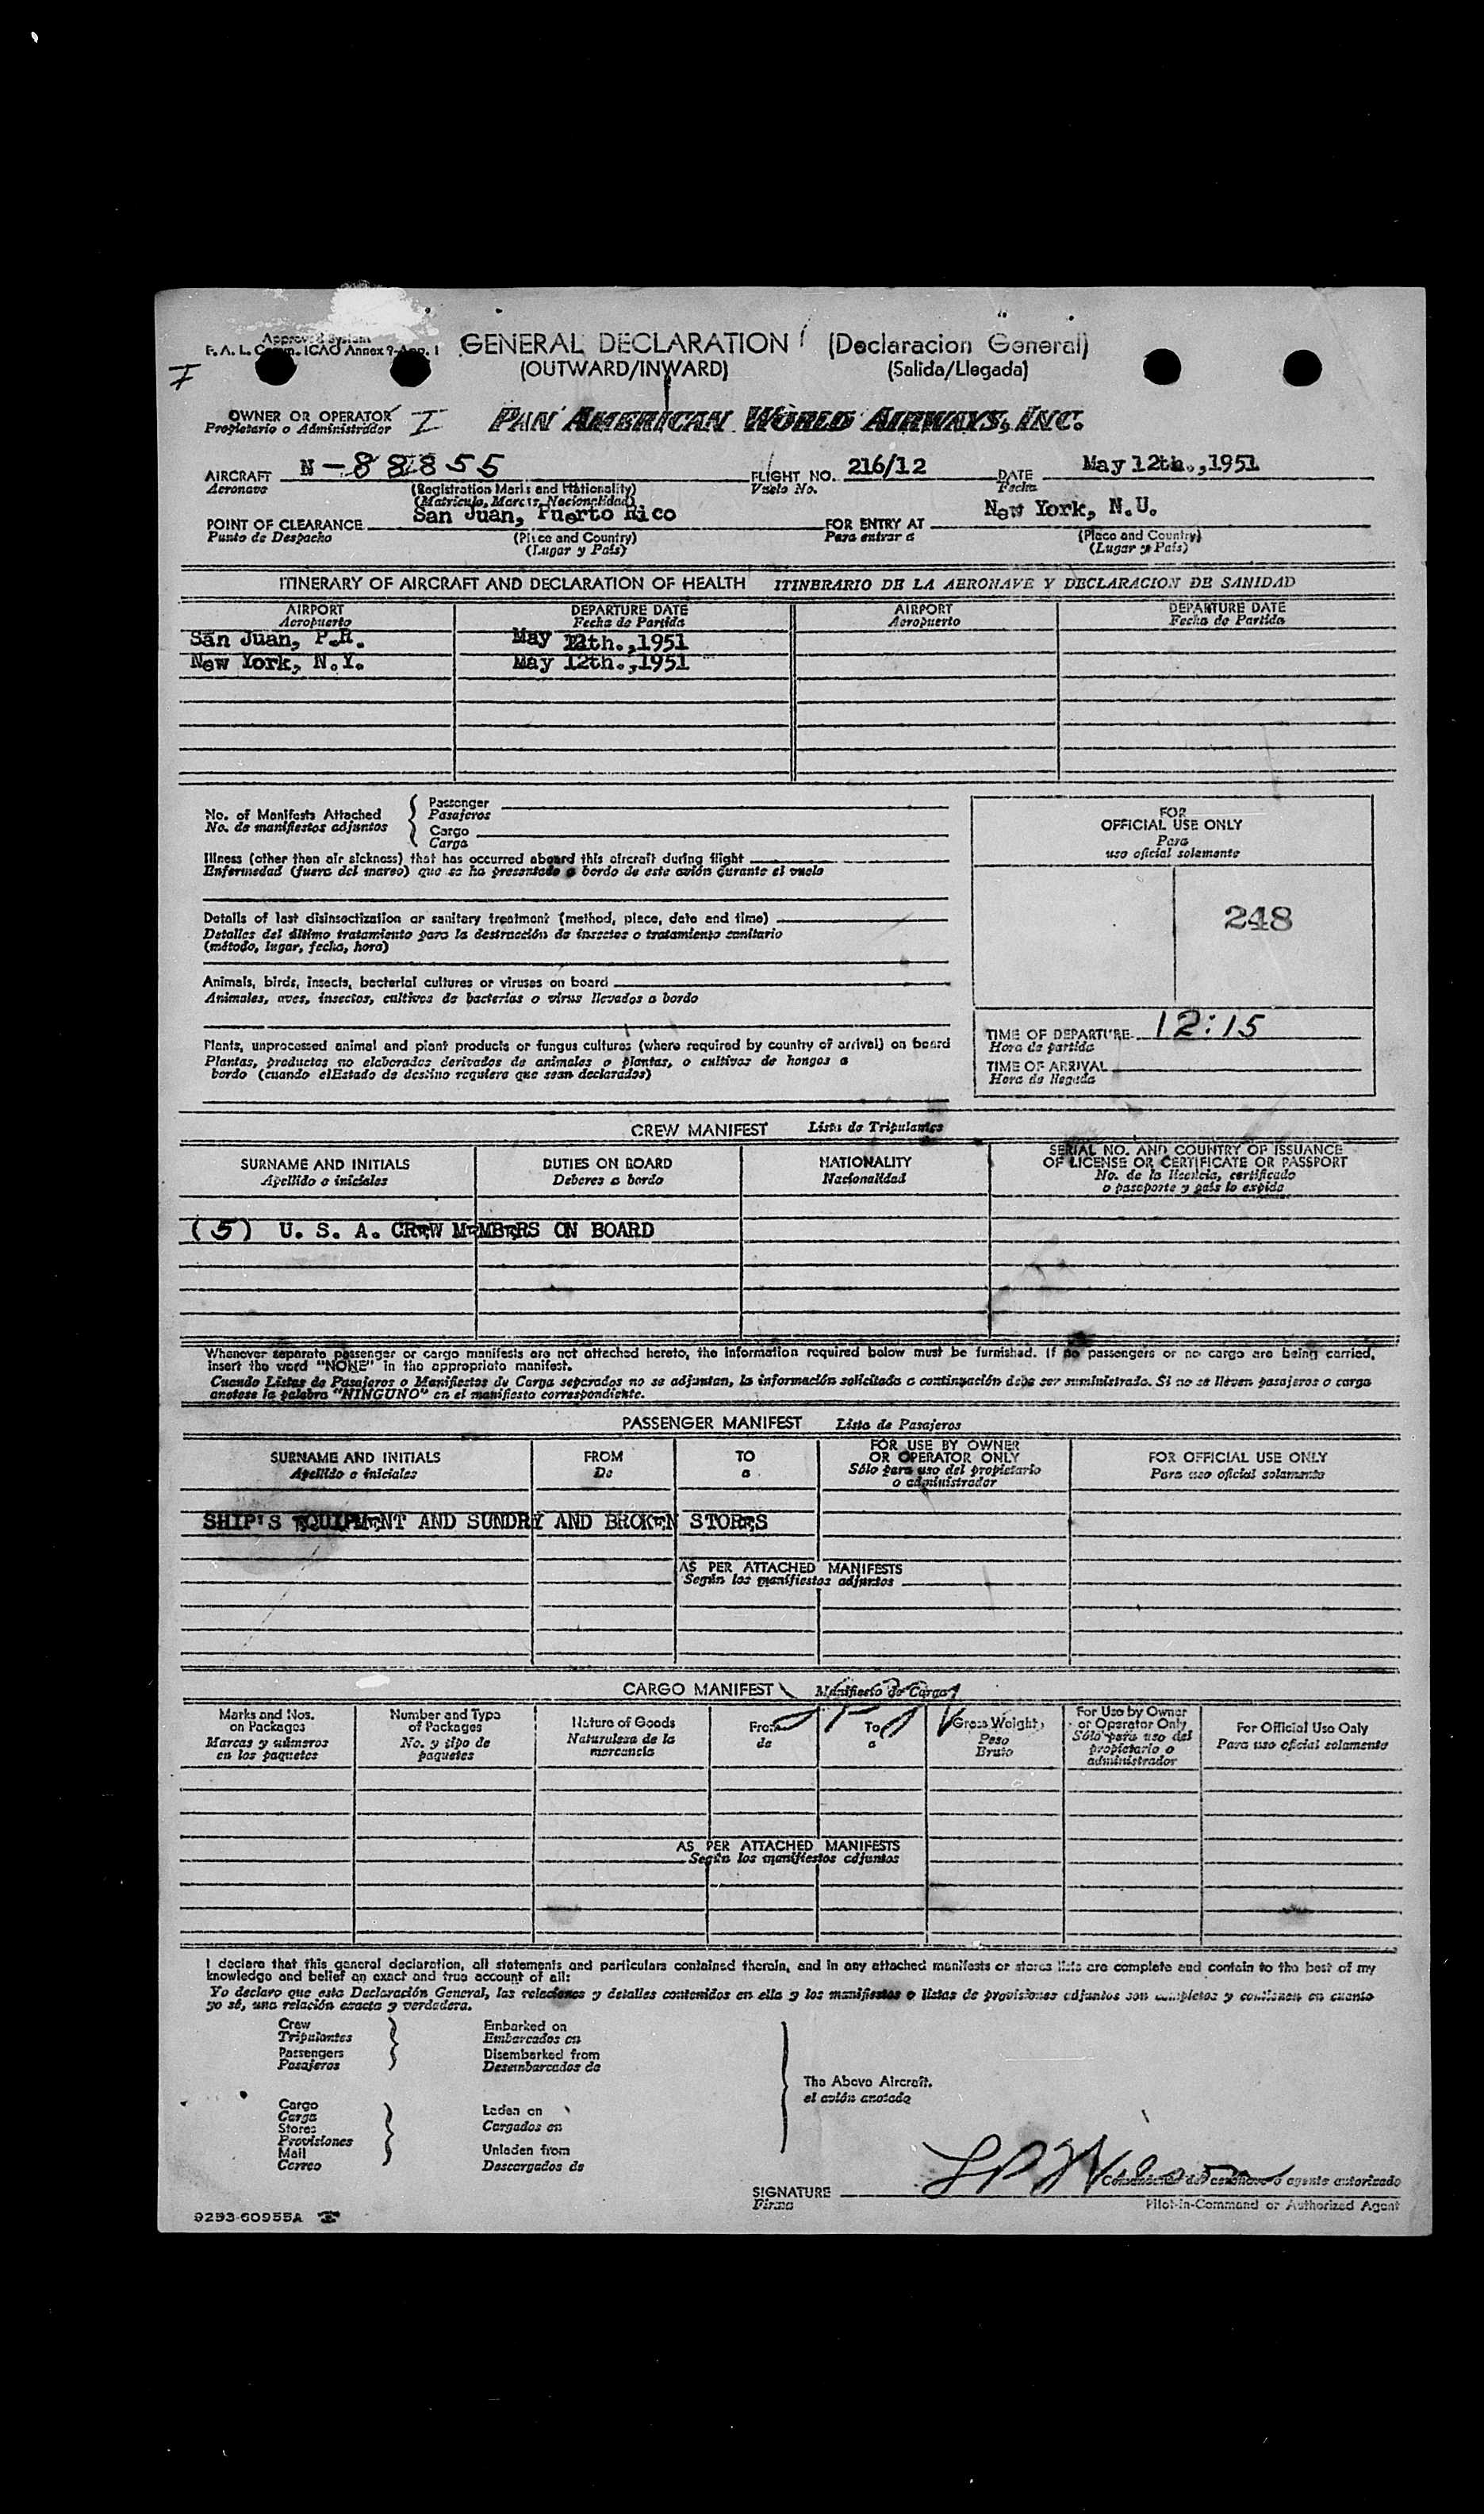 Approved System
F. A. L. Comm. ICAO Annex 9-App. I
GENERAL DECLARATION (Declaracion General)
(OUTWARD/INWARD) (Salida/Llegada)
I
OWNER OR OPERATOR I PAN AMERICAN WORLD AIRWAYS, INC.
Propietario o Administrador
AIRCRAFT N-88855 FLIGHT NO. 216/12 DATE May 12th.,1951
Aeronave (Registration Marks and Nationality) Vuelo No. Fecha
(Matricula, Marcas, Nacionalidad)
POINT OF CLEARANCE San Juan, Puerto Rico FOR ENTRY AT New York, N.U.
Punto de Despacho (Place and Country) Para entrar a (Place and Country)
(Lugar y País) (Lugar y País)
ITINERARY OF AIRCRAFT AND DECLARATION OF HEALTH ITINERARIO DE LA AERONAVE Y DECLARACION DE SANIDAD
AIRPORT DEPARTURE DATE AIRPORT DEPARTURE DATE
Aeropuerto Fecha de Partida Aeropuerto Fecha de Partida
San Juan, P.R. May 12th.,1951
New York, N.Y. May 12th.,1951
No. of Manifests Attached
No. de manifiestos adjuntos
Passenger
Pasajeros
Cargo
Carga
Illness (other than air sickness) that has occurred aboard this aircraft during flight
Enfermedad (fuera del mareo) que se ha presentado a bordo de este avión durante el vuelo
Details of last disinsectization or sanitary treatment (method, place, date and time)
Detalles del último tratamiento para la destrucción de insectos o tratamiento sanitario
(método, lugar, fecha, hora)
Animals, birds, insects, bacterial cultures or viruses on board
Animales, aves, insectos, cultivos de bacterias o virus llevados a bordo
Plants, unprocessed animal and plant products or fungus cultures (where required by country of arrival) on board
Plantas, productos no elaborados derivados de animales o plantas, o cultivos de hongos a
bordo (cuando elEstado de destino requiere que sean declarados)
FOR
OFFICIAL USE ONLY
Para
uso oficial solamente
248
TIME OF DEPARTURE 12:15
Hora de partida
TIME OF ARRIVAL
Hora de llegada
CREW MANIFEST Lista de Tripulantes
SURNAME AND INITIALS DUTIES ON BOARD NATIONALITY SERIAL NO. AND COUNTRY OF ISSUANCE
Apellido e iniciales Deberes a bordo Nacionalidad OF LICENSE OR CERTIFICATE OR PASSPORT
No. de la licencia, certificado
o pasaporte y país lo expide
(5) U. S. A. CREW MEMBERS ON BOARD
Whenever separate passenger or cargo manifests are not attached hereto, the information required below must be furnished. If no passengers or no cargo are being carried,
insert the word "NONE" in the appropriate manifest.
Cuando Listas de Pasajeros o Manifiestos de Carga separados no se adjuntan, la información solicitada a continuación debe ser suministrada. Si no se lleven pasajeros o carga
anotese la palabra "NINGUNO" en el manifiesto correspondiente.
PASSENGER MANIFEST Lista de Pasajeros
SURNAME AND INITIALS FROM TO FOR USE BY OWNER FOR OFFICIAL USE ONLY
Apellido e iniciales De a OR OPERATOR ONLY Para uso oficial solamente
Sólo para uso del propietario
o administrador
SHIP'S EQUIPMENT AND SUNDRY AND BROKEN STORES
AS PER ATTACHED MANIFESTS
Según los manifiestos adjuntos
CARGO MANIFEST Manifiesto de Carga
Marks and Nos.
on Packages
Marcas y números
en los paquetes
Number and Type
of Packages
No. y tipo de
paquetes
Nature of Goods
Naturuleza de la
mercancia
From
de
To
a
Gross Weight
Peso
Bruto
For Use by Owner
or Operator Only
Sólo para uso del
propietario o
administrador
For Official Use Only
Para uso oficial solamente
AS PER ATTACHED MANIFESTS
Según los manifiestos adjuntos
I declare that this general declaration, all statements and particulars contained therein, and in any attached manifests or stores lists are complete and contain to the best of my
knowledge and belief an exact and true account of all:
Yo declaro que esta Declaración General, las relaciones y detalles contenidos en ella y los manifiestos o listas de provisiones adjuntos son completos y contienen en cuanto
yo sé, una relación exacta y verdadera.
Crew
Tripulantes
Passengers
Pasajeros
Embarked on
Embarcados en
Disembarked from
Desembarcados de
The Above Aircraft.
el avión anotado
Cargo
Carga
Stores
Provisiones
Mail
Correo
Laden on
Cargados en
Unladen from
Descargados de
SIGNATURE LP Wilson
Firma
Comandante de aeronave o agente autorizado
Pilot-in-Command or Authorized Agent
9293-60955A